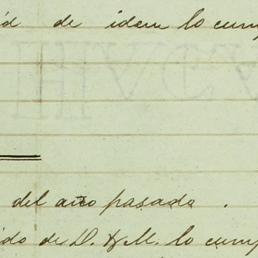 id de idem lo cump
del año pasado.
ido de D. y M. lo cump